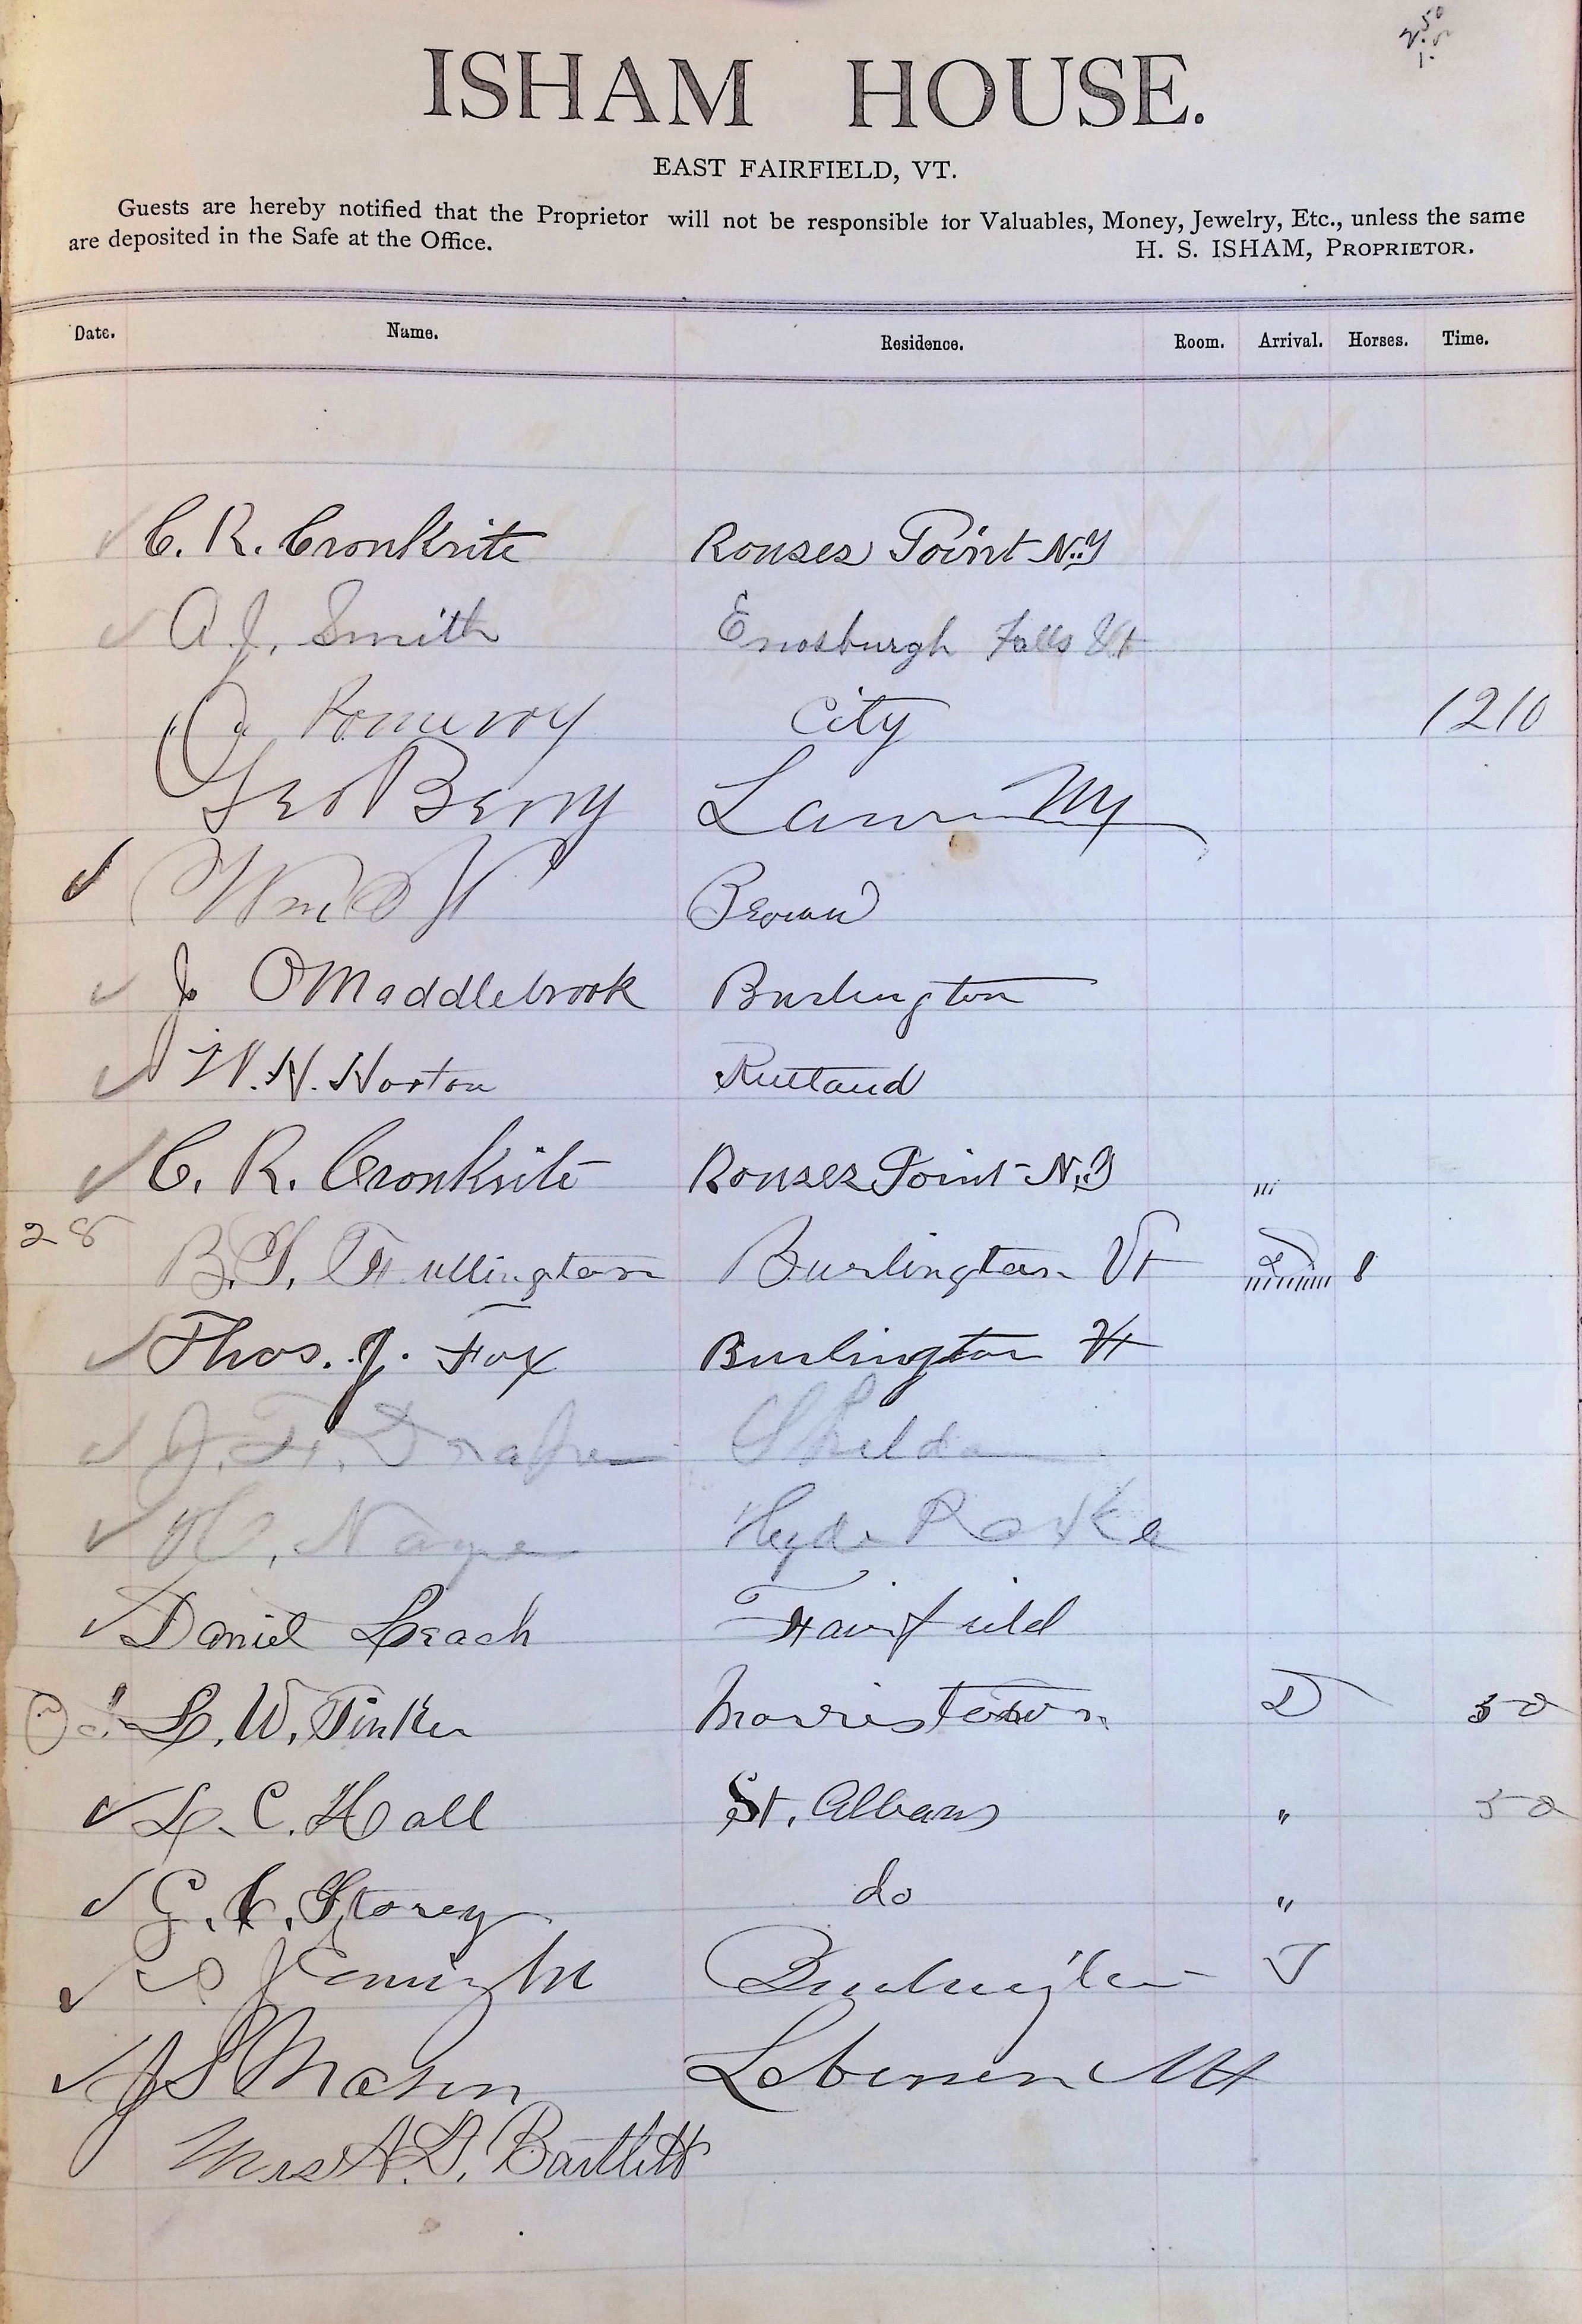 ISHAM HOUSE.
EAST FAIRFIELD, VT.
Guests are hereby notified that the Proprietor will not be responsible for Valuables, Money, Jewelry, Etc., unless the same
are deposited in the Safe at the Office.
H. S. ISHAM, PROPRIETOR.
Date. Name. Residence. Room. Arrival. Horses. Time.
C. R. Cronkrite Rouses Point N.Y
A J. Smith Enosburgh Falls Vt
Pomeroy City 1210
Geo Berry
Wm Brown
J. O Maddlebrook Burlington
W. H. Horton Rutland
C. R. Cronkrite Rouses Point N.Y
28 B. Fullington Burlington Vt
Thos. J. Fox Burlington Vt
J. F. Draper Sheldon
Hyde
Daniel Leach Fairfield
L. W. Tinker Morristown D 50
L. C. Hall St. Albans " 50
G. C. Storey do "
Burlington
J S Mason NH
Mrs A. D. Bartlett